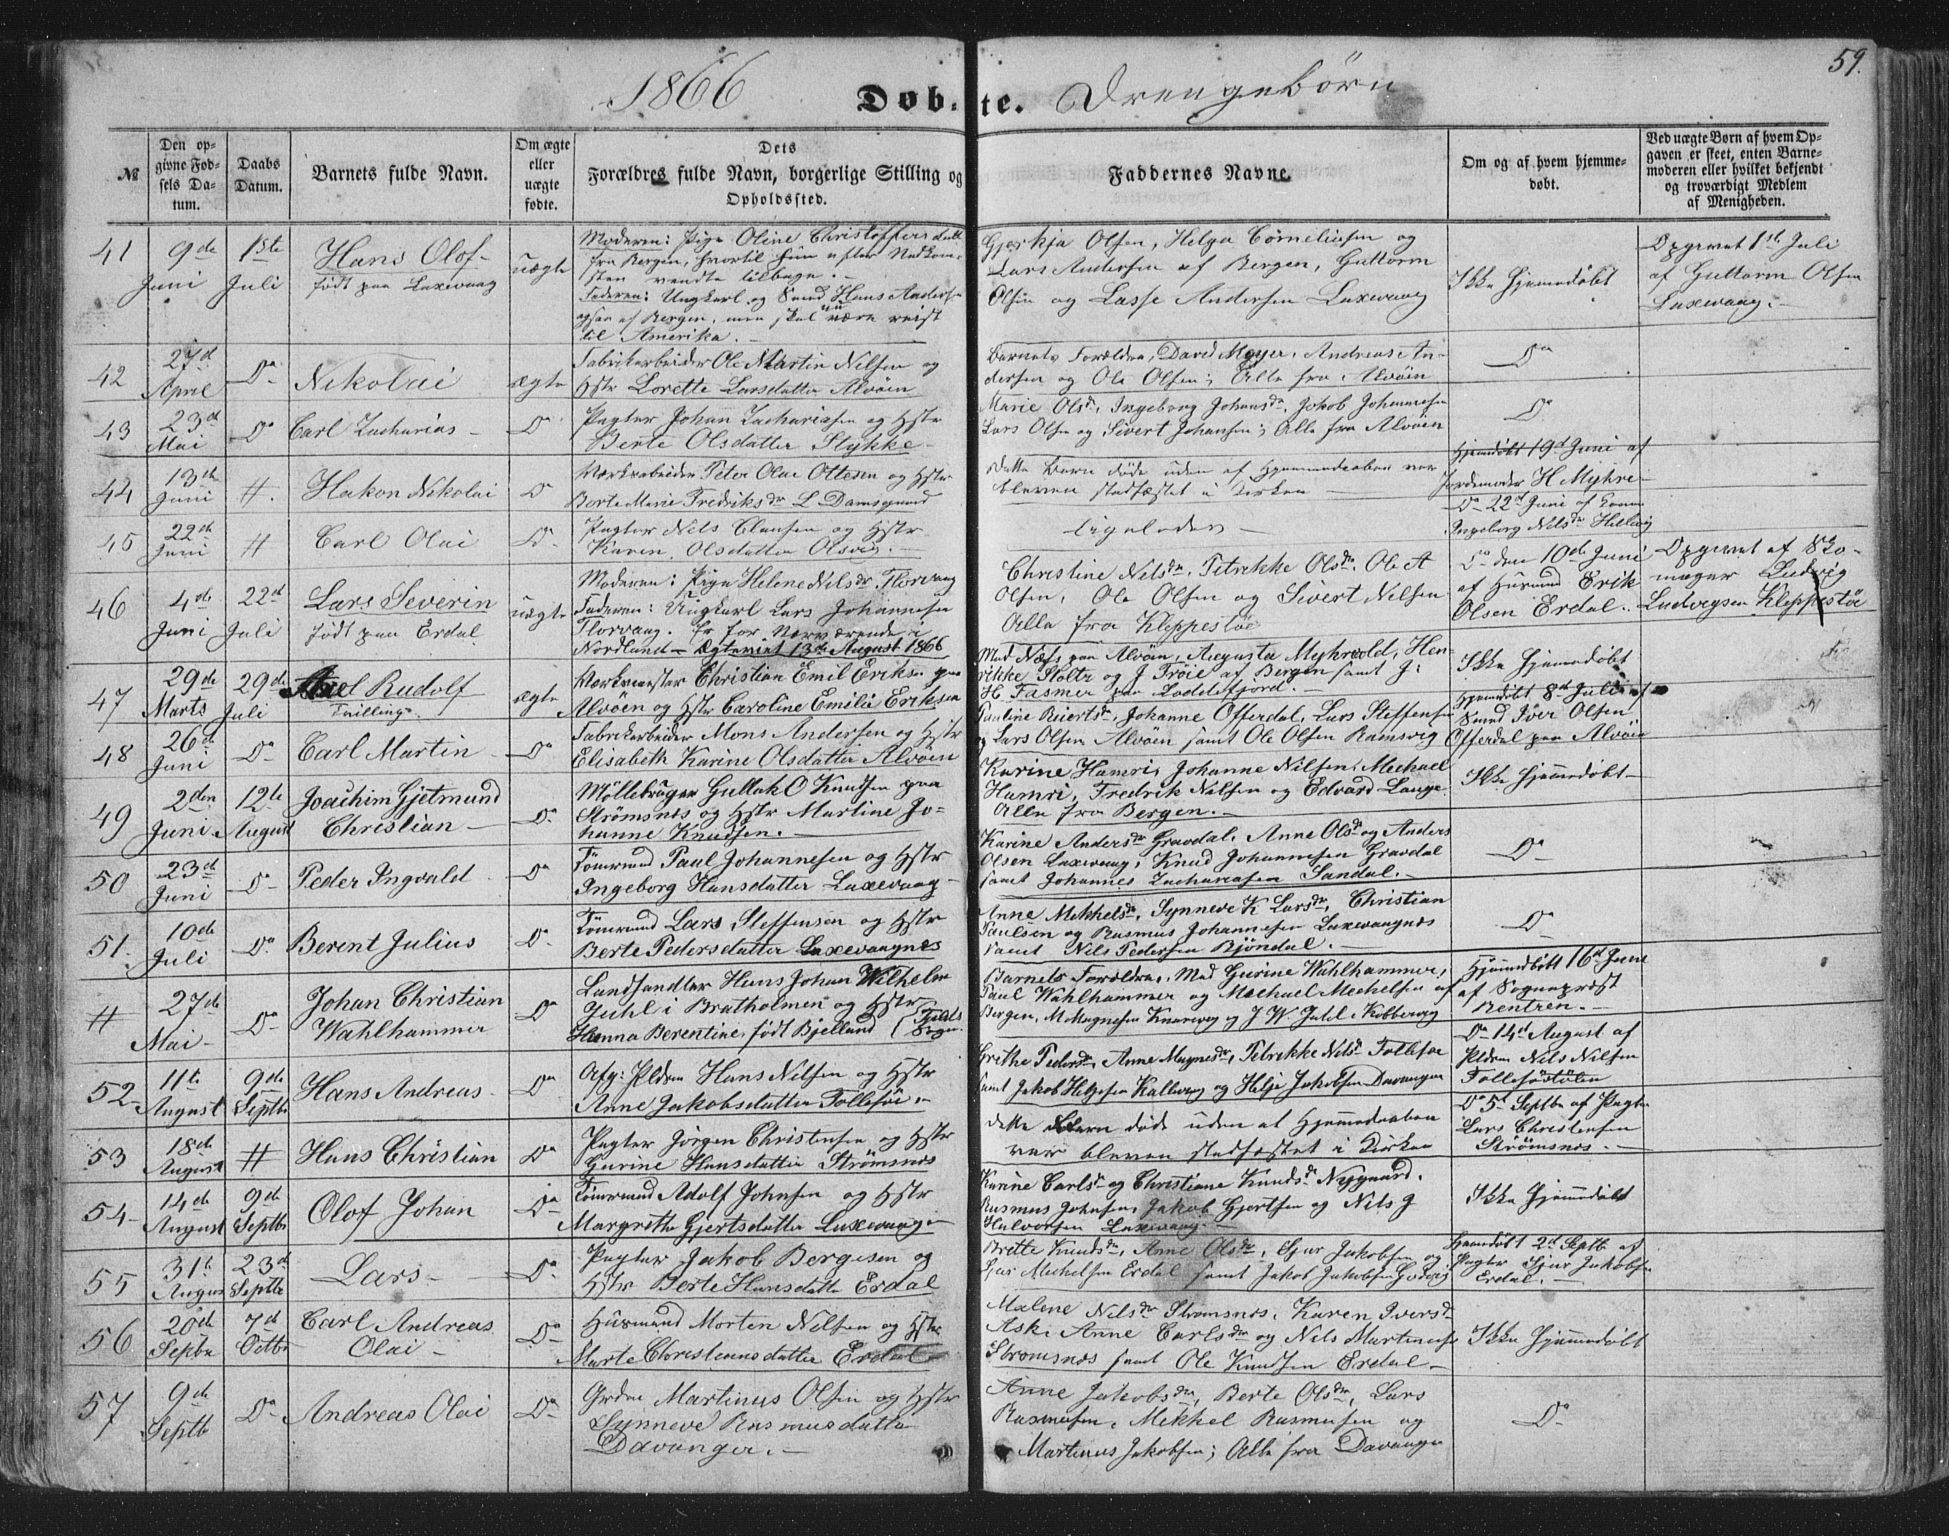 59.
1866 Døbte. Drengebörn
№
Den opgivne Fødsels Datum.
Daabs Datum.
Barnets fulde Navn.
Om ægte eller uægte fødte.
Dets Forældres fulde Navn, borgerlige Stilling og Opholdssted.
Faddernes Navne
Om og af hvem hjemmedøbt.
Ved uægte Børn af hvem Opgaven er skeet, enten Barnemoderen eller hvilket bekjendt og troværdigt Medlem af Menigheden.
41
9de Juni
1ste Juli
Hans Olof
født paa Laxevaag
uægte
Moderen: Pige Oline Christoffersdatt
fra Bergen, hvortil hun efter Nedkom-
sten vendte tilbage. -
Faderen: Ungkarl og Smed Hans Andersen
ogsaa af Bergen, men skal nu være reist
til Amerika. -
Olsen, Helga Cörneliusen og
Lars Andersen af Bergen, Guttorm
Olsen og Lasse Andersen Laxevaag
Ikke Hjemmedöbt
Opgivet 1ste Juli
af Guttorm Olsen
Laxevaag. -
42
27d April
Do
Nikolai
ægte
Fabrikarbeider Ole Martin Nilsen og
Hstr Lorette Larsdatter Alvöen
Barnets Forældre, David Meyer, Andreas An-
dersen og Ole Olsen; Alle fra Alvöen
Do
43
23d Mai
Do
Carl Zacharias -
Do
Pagter Johan Zachariasen og Hstr
Berte Olsdatter Stykke -
Marie Olsdr, Ingeborg Johansdr, Jakob Johannesen
Lars Olsen og Sivert Johansen; Alle fra Alvöen
Do
44
13de Juni
#.
Hakon Nikolai
Do
Værkarbeider Peter Olai Ottesen og Hstr
Berte Marie Fredriksdr L Damsgaard
Dette Barn døde uden at Hjemmedaaben var
bleven stadfæstet i Kirken -
Hjemdöbt 19d Juni af
Jordemoder H Myhre -
45
22d Juni
#
Carl Olai
Do
Pagter Nils Clausen og Hstr
Karen Olsdatter Olsvig. -
ligeledes -
Do 22d Juni af Konen
Ingeborg Nilsdr
46
4de Juni
22d Juli
Lars Severin
født paa Erdal
uægte
Moderen: Pige Helene Nilsdr. Florvaag
Faderen: Ungkarl Lars Johannesen
Florvaag. Er for Nærværende i
Nordland - Ægteviet 13de August 1866
Christine Nilsdr, Petrikke Olsdr, Ole A
Olsen, Ole Olsen og Sivert Nilsen
Alle fra Kleppestöe
Do den 10de Juni
af Husmand Erik
Olsen Erdal. -
Opgivet af Sko-
mager Ludvig
Ludvigsen Kleppestöe
47
29de Marts
29de Juli
Axel Rudolf
Tvilling.
ægte
Værkmester Christian Emil Eriksen paa
Alvöen og Hstr Caroline Emilie Eriksen
Mad Næss paa Alvöen, Augusta Myhrvold, Hen-
rikke Stoltz og J Tröie af Bergen samt J:
H Fasmer paa Loddefjord. -
Ikke Hjemedöbt
48
26d Juni
Do
Carl Martin -
Do
Fabrikarbeider Mons Andersen og Hstr
Elisabeth Karine Olsdatter Alvöen
Pauline Biertsdr, Johanne Offerdal, Lars Steffensen
og Lars Olsen Alvöen samt Ole Olsen Ramsvig
Hjemdöbt 8de Juli af
Smed Iver Olsen
Offerdal paa Alvöen
49
2den Juni
12te August
Joachim Gjetmund
Christian -
Do
Möllebruger Gullak O Knudsen paa
Strömsnes og Hstr Martine Jo-
hanne Knudsen. -
Karine Hamri, Johanne Nilsen, Mechael
Hamri, Fredrik Nilsen og Edvard Lange
Alle fra Bergen. -
Ikke Hjemmedöbt -
50
23d Juni
Do
Peder Ingvald -
Do
Tömrmd Paul Johannesen og Hstr
Ingeborg Hansdatter Laxevaag -
Karine Andersdr Gravdal, Anne Olsdr og Anders
Olsen Laxevaag, Knud Johannesen Gravdal
samt Johannes Zachariasen Sandal. -
Do
51.
10de Juli
Do
Berent Julius
Do
Tömrmd Lars Steffensen og Hstr
Berte Pedersdatter Laxevaagnes
Anne Mikkelsdr, Synneve K Larsdr, Christian
Paulsen og Rasmus Johannesen Laxevaagnes
samt Nils Pedersen Bjöndal. -
Do
#
27de Mai -
Do
Johan Christian
Wahlhammer
Do
Landhandler Hans Johan Wilhelm
Juhl i Bratholmen og Hstr
Hanna Berentine, født Bjelland (Fjelds Sogn.
Barnets Forældre, Mad Gurine Wahlhammer,
Paul Wahlhammer og Mechael Mechelsen af
Bergen, M Magnesen Knarvig og J W. Juhl Kobbevaag
Hjemmedöbt 16d Juni
af Sognepræst
Rentzen. -
52
11te August
9de Septbr
Hans Andreas -
Do
Afg: Pldrm Hans Nilsen og Hstr
Anne Jakobsdatter Follesöe. -
Grethe Pedersdr, Anne Magnesdr, Petrikke Nilsdr Follesöe
samt Jakob Helgesen Kallevig og Helje Jakobsen Davanger
Do 14d August af
Pldrm Nils Nilsen
53
18de August
#
Hans Christian
Do
Pagter Jörgen Christensen og Hstr
Gurine Hansdatter Strömsnes
Dette Barn døde uden at Hjemmedaaben
var bleven stadfæstet i Kirken
Do 5t Septbr af Pagter
Lars Christensen
Strömsnes. -
54
14de August
9de Septbr
Olof Johan
Do
Tömrmd Adolf Johnsen og Hstr
Margrethe Gjertsdatter Laxevaag -
Karine Carlsdr og Christiane Knudsdr Nygaard.
Rasmus Johnsen, Jakob Gjertsen og Nils J
Halvorsen Laxevaag. -
Ikke Hjemmedöbt
55
31t August
23d Septbr
Lars -
Do
Pagter Jakob Bergesen og
Hstr Berte Hansdatter Erdal
Britte Knudsdr, Anne Olsdr, Sjur Jakobsen og
Sjur Mechelsen Erdal samt Jakob Jakobsen
Hjemdöbt 2d Septbr af
Pagter Sjur Jakobsen
Erdal. -
56
20de Septbr
7d Octbr
Carl Andreas
Olai -
Do
Husmand Morten Nilsen og Hstr
Marte Christensdatter Erdal -
Malene Nilsdr Strömsnes, Karen Iversdr
Ask, Anne Carlsdr og Nils Martinesen
Strömsnes samt Ole Knudsen Erdal -
Ikke Hjemmedöbt
57
9de Septbr
Do
Andreas Olai
Do
Grdm Martinus Olsen og Hstr
Synneve Rasmusdatter
Davanger. -
Anne Jakobsdr, Berte Olsdr, Lars
Rasmusen, Mikkel Rasmusen og
Martinus Jakobsen; Alle fra Davanger
Do